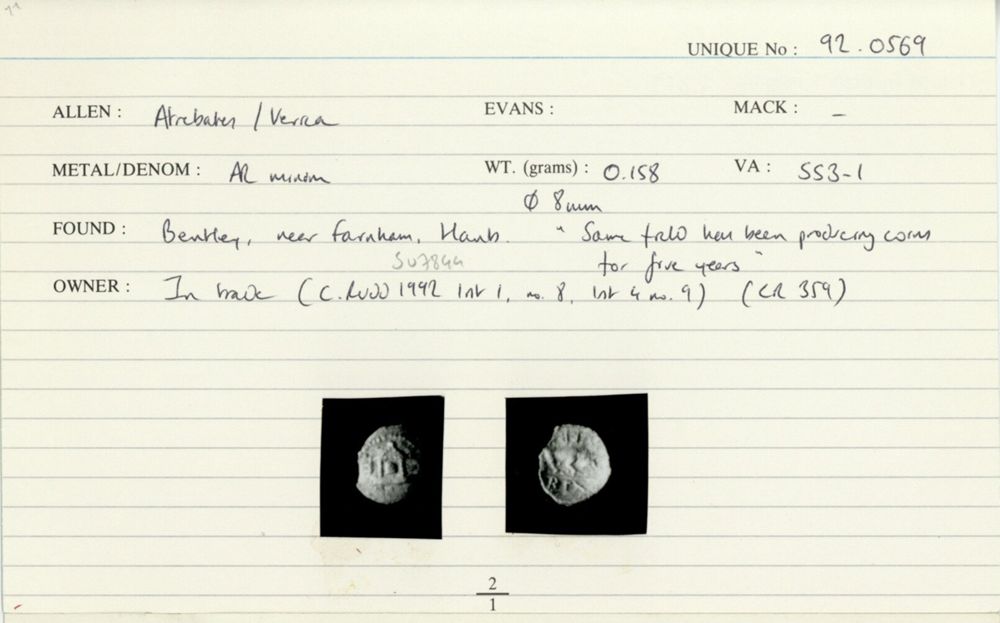 UNIQUE No : 92.0569
ALLEN : Atrebates / Verica EVANS : MACK : –
METAL/DENOM : AR minim WT. (grams) : 0.158 VA : 553-1
Ø 8mm
FOUND : Bentley, near Farnham, Hants. "Same field has been producing coins
SU7844 for five years"
OWNER : In trade (C. RUDD 1992 list 1, no. 8, list 4 no. 9) (CR 359)
RE
2
1